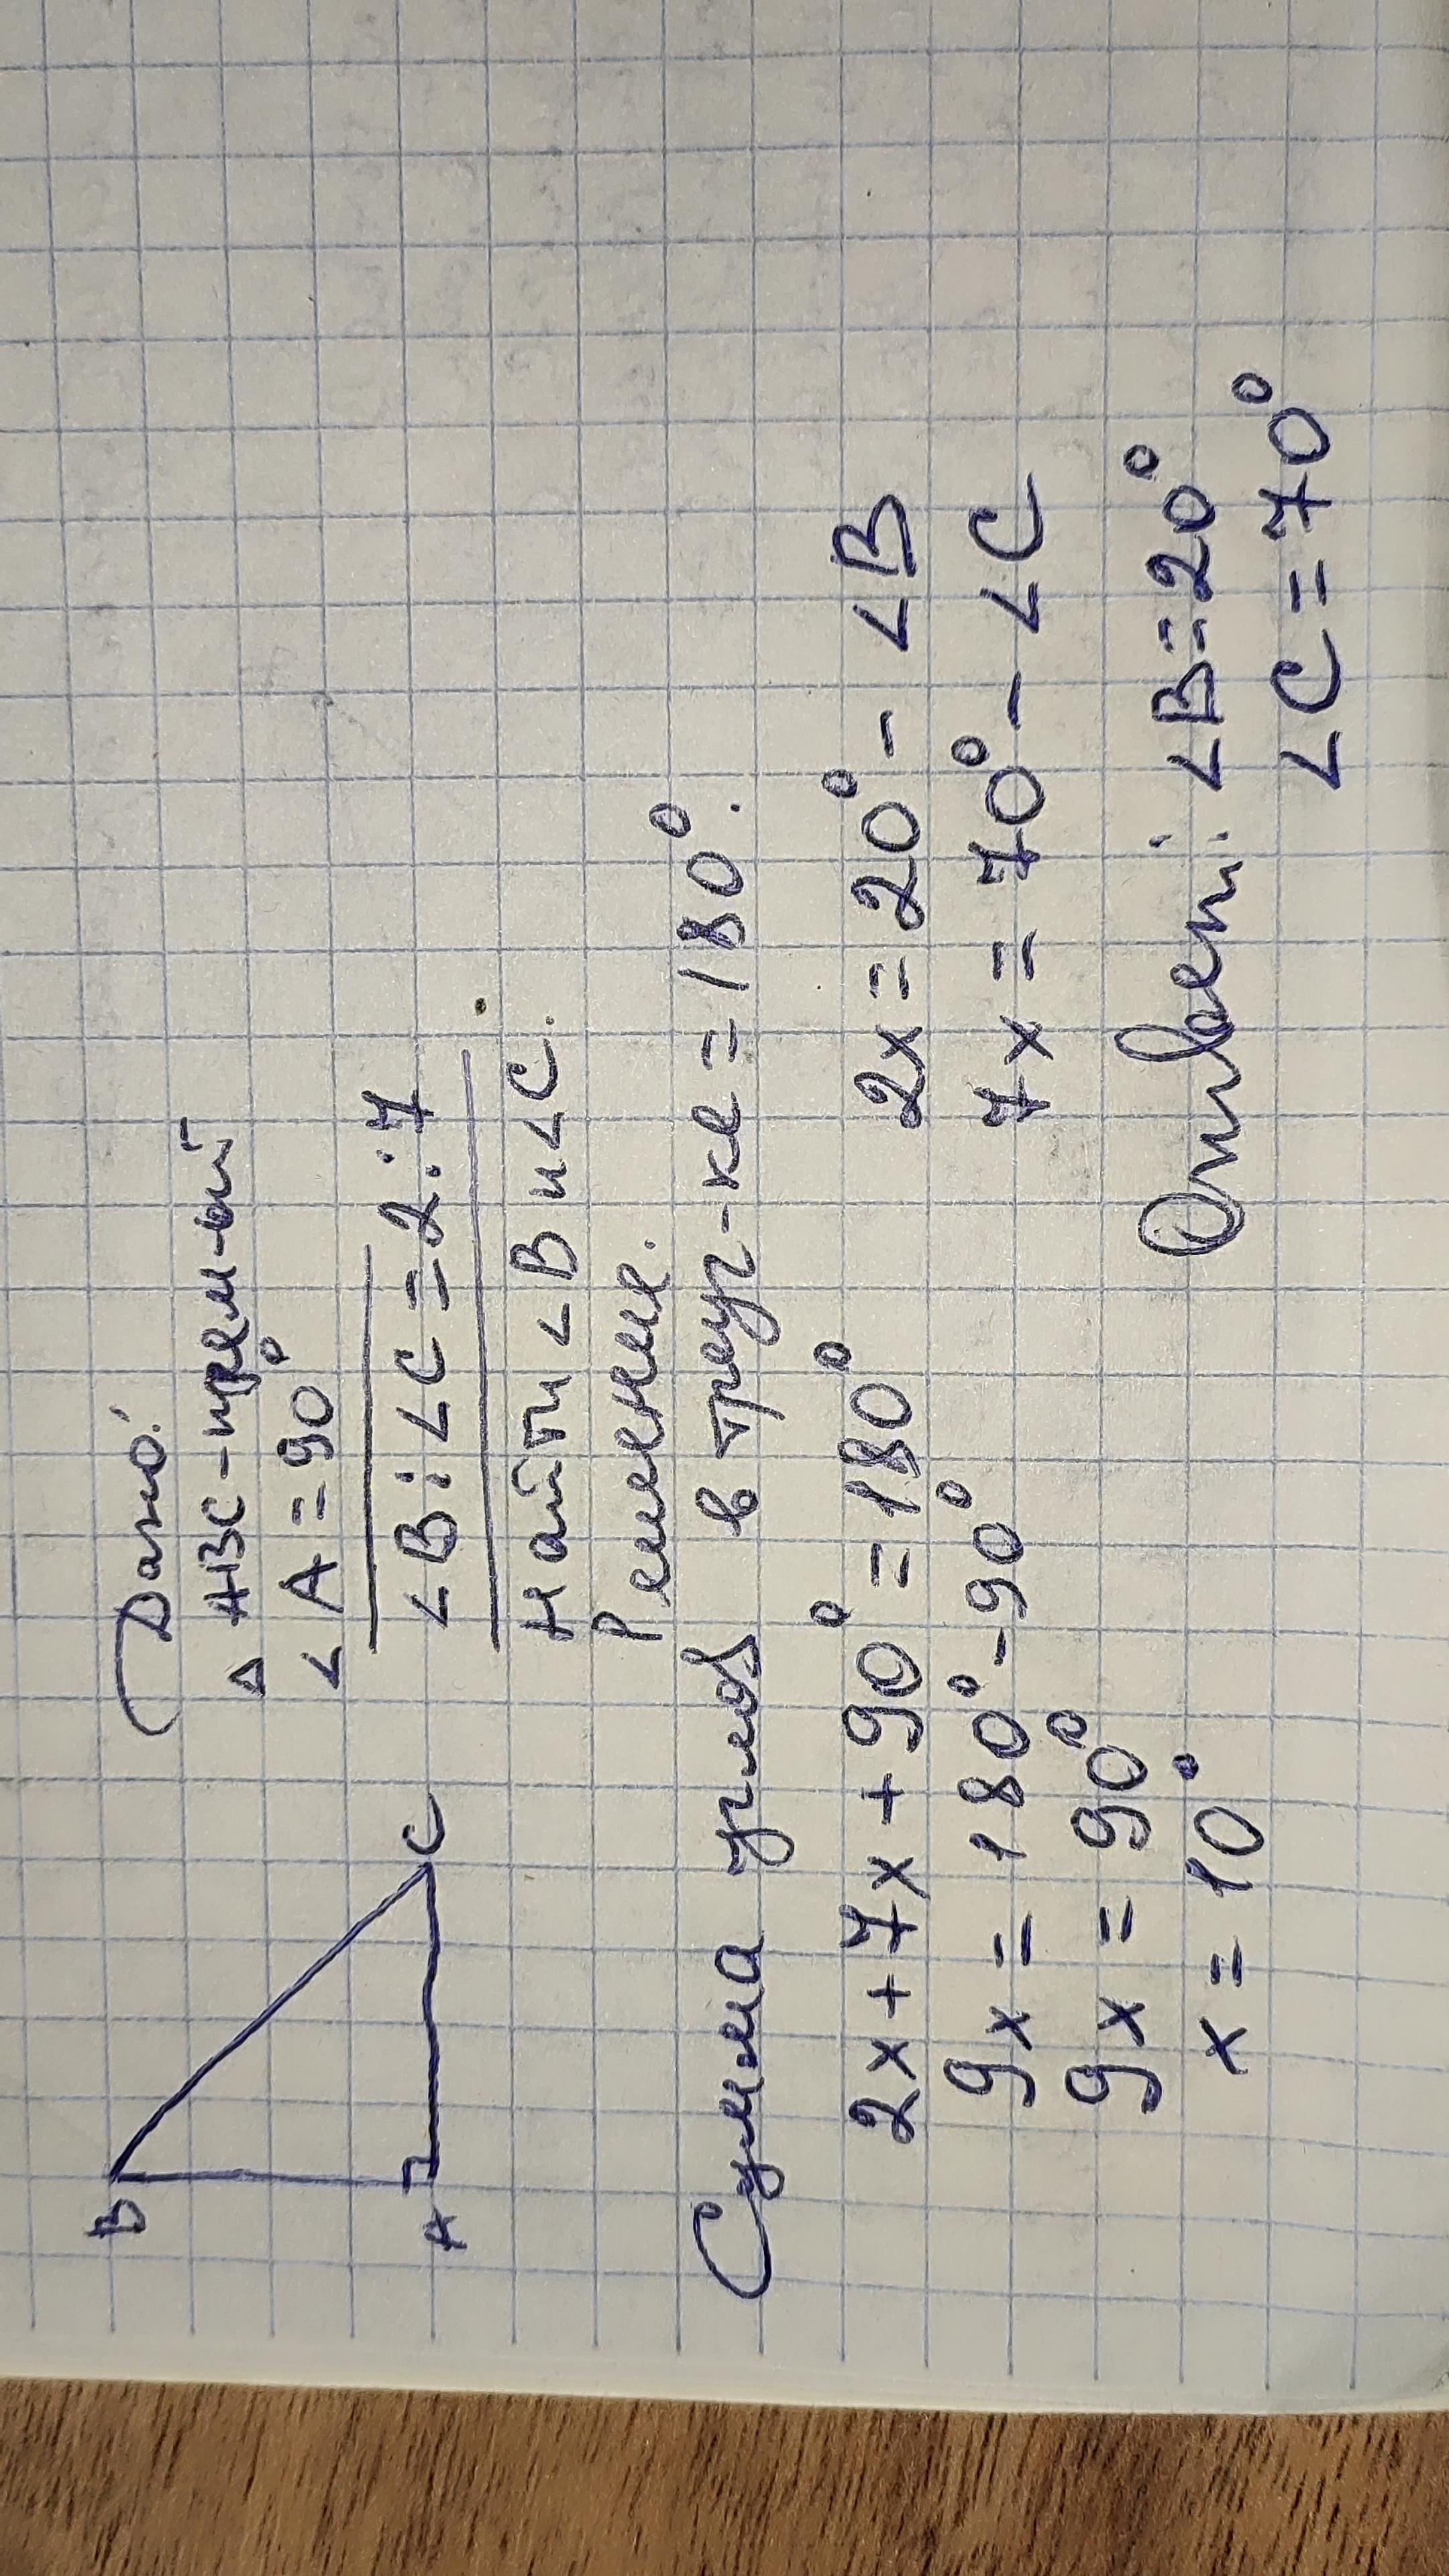 Дано:
△ ABC - прям-ый
∠A = 90°
∠B : ∠C = 2 : 7
Найти ∠B и ∠C.
B
A
C
Решение.
Сумма углов в треуг-ке = 180°.
2x + 7x + 90° = 180°
9x = 180° - 90°
9x = 90°
x = 10°
2x = 20° - ∠B
7x = 70° - ∠C
Ответ: ∠B = 20°
∠C = 70°